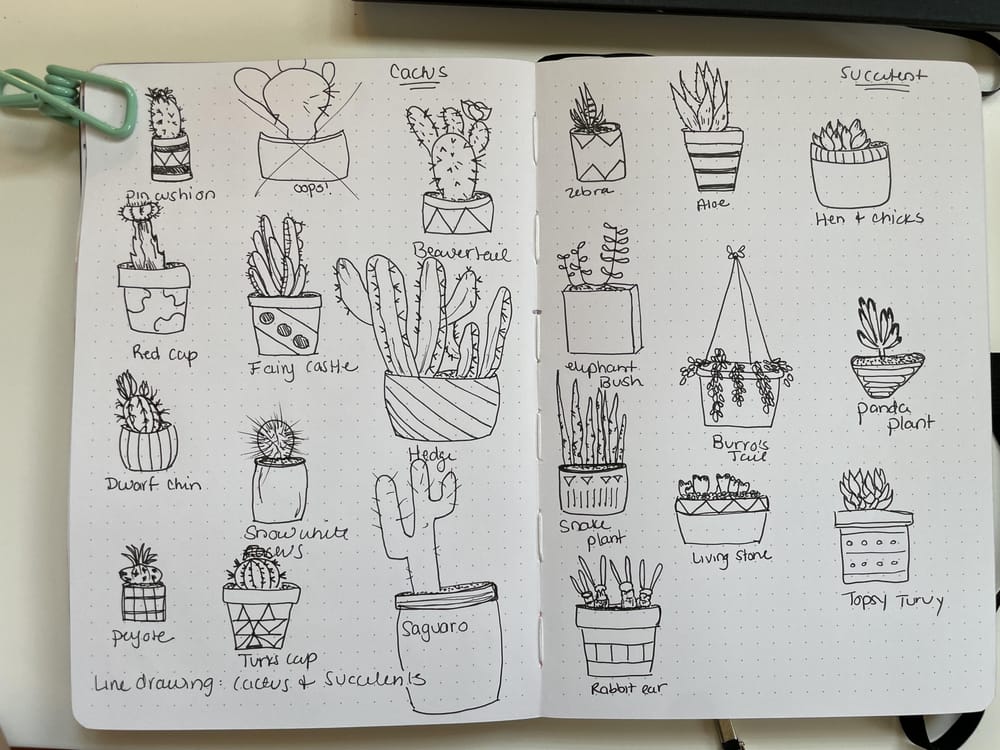 Cactus
Pin cushion
oops!
Beavertail
Red cap
Fairy castle
Hedge
Dwarf chin
Snow white
Peyote
Turks cap
Saguaro
Line drawing: Cactus & Succulents
Succulent
Zebra
Aloe
Hen & chicks
elephant
Bush
Burro's
Tail
panda
plant
Snake
plant
Living Stone
Topsy Turvy
Rabbit ear